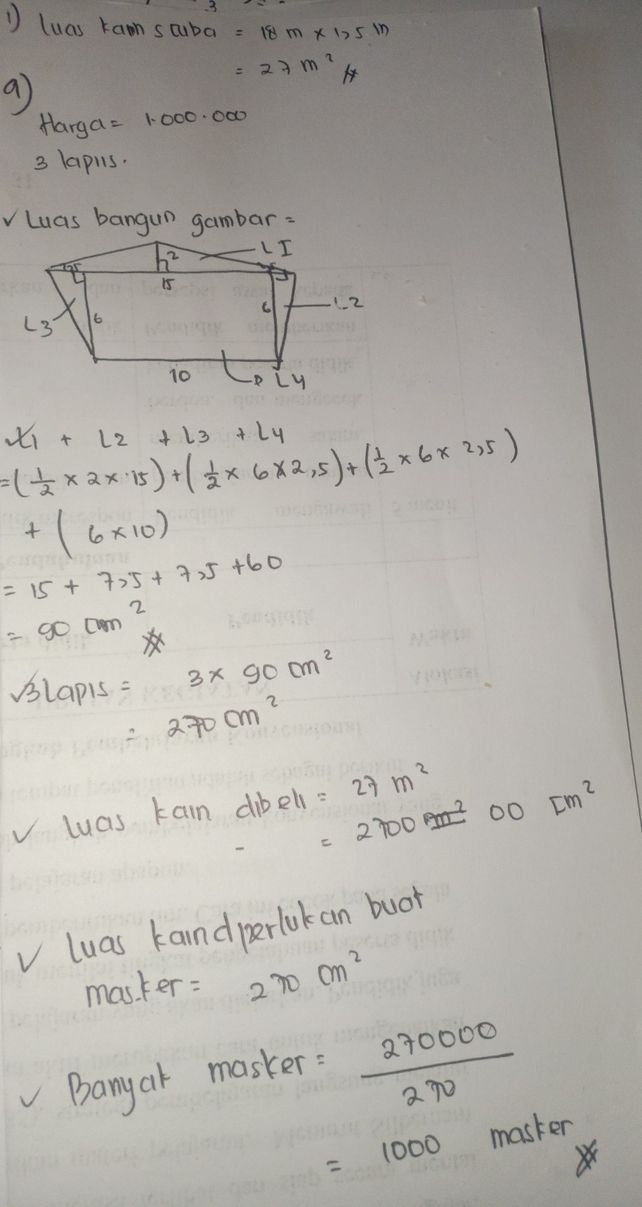 1) Luas kain scuba = 18 m x 1,5 m
= 27 m²
a)
Harga = 1.000.000
3 lapiis.
✓ Luas bangun gambar =
2
LI
15
L3
6
6
L2
10
L4
L1 + L2 + L3 + L4
= (1/2 x 2 x 15) + (1/2 x 6 x 2,5) + (1/2 x 6 x 2,5)
+ (6 x 10)
= 15 + 7,5 + 7,5 + 60
= 90 cm²
✓ 3 Lapis = 3 x 90 cm²
= 270 cm²
✓ Luas kain dibeli = 27 m²
= 2700 m² 00 cm²
✓ Luas kain dperlukan buat
masker = 270 cm²
✓ Banyak masker = 270000
270
= 1000 masker